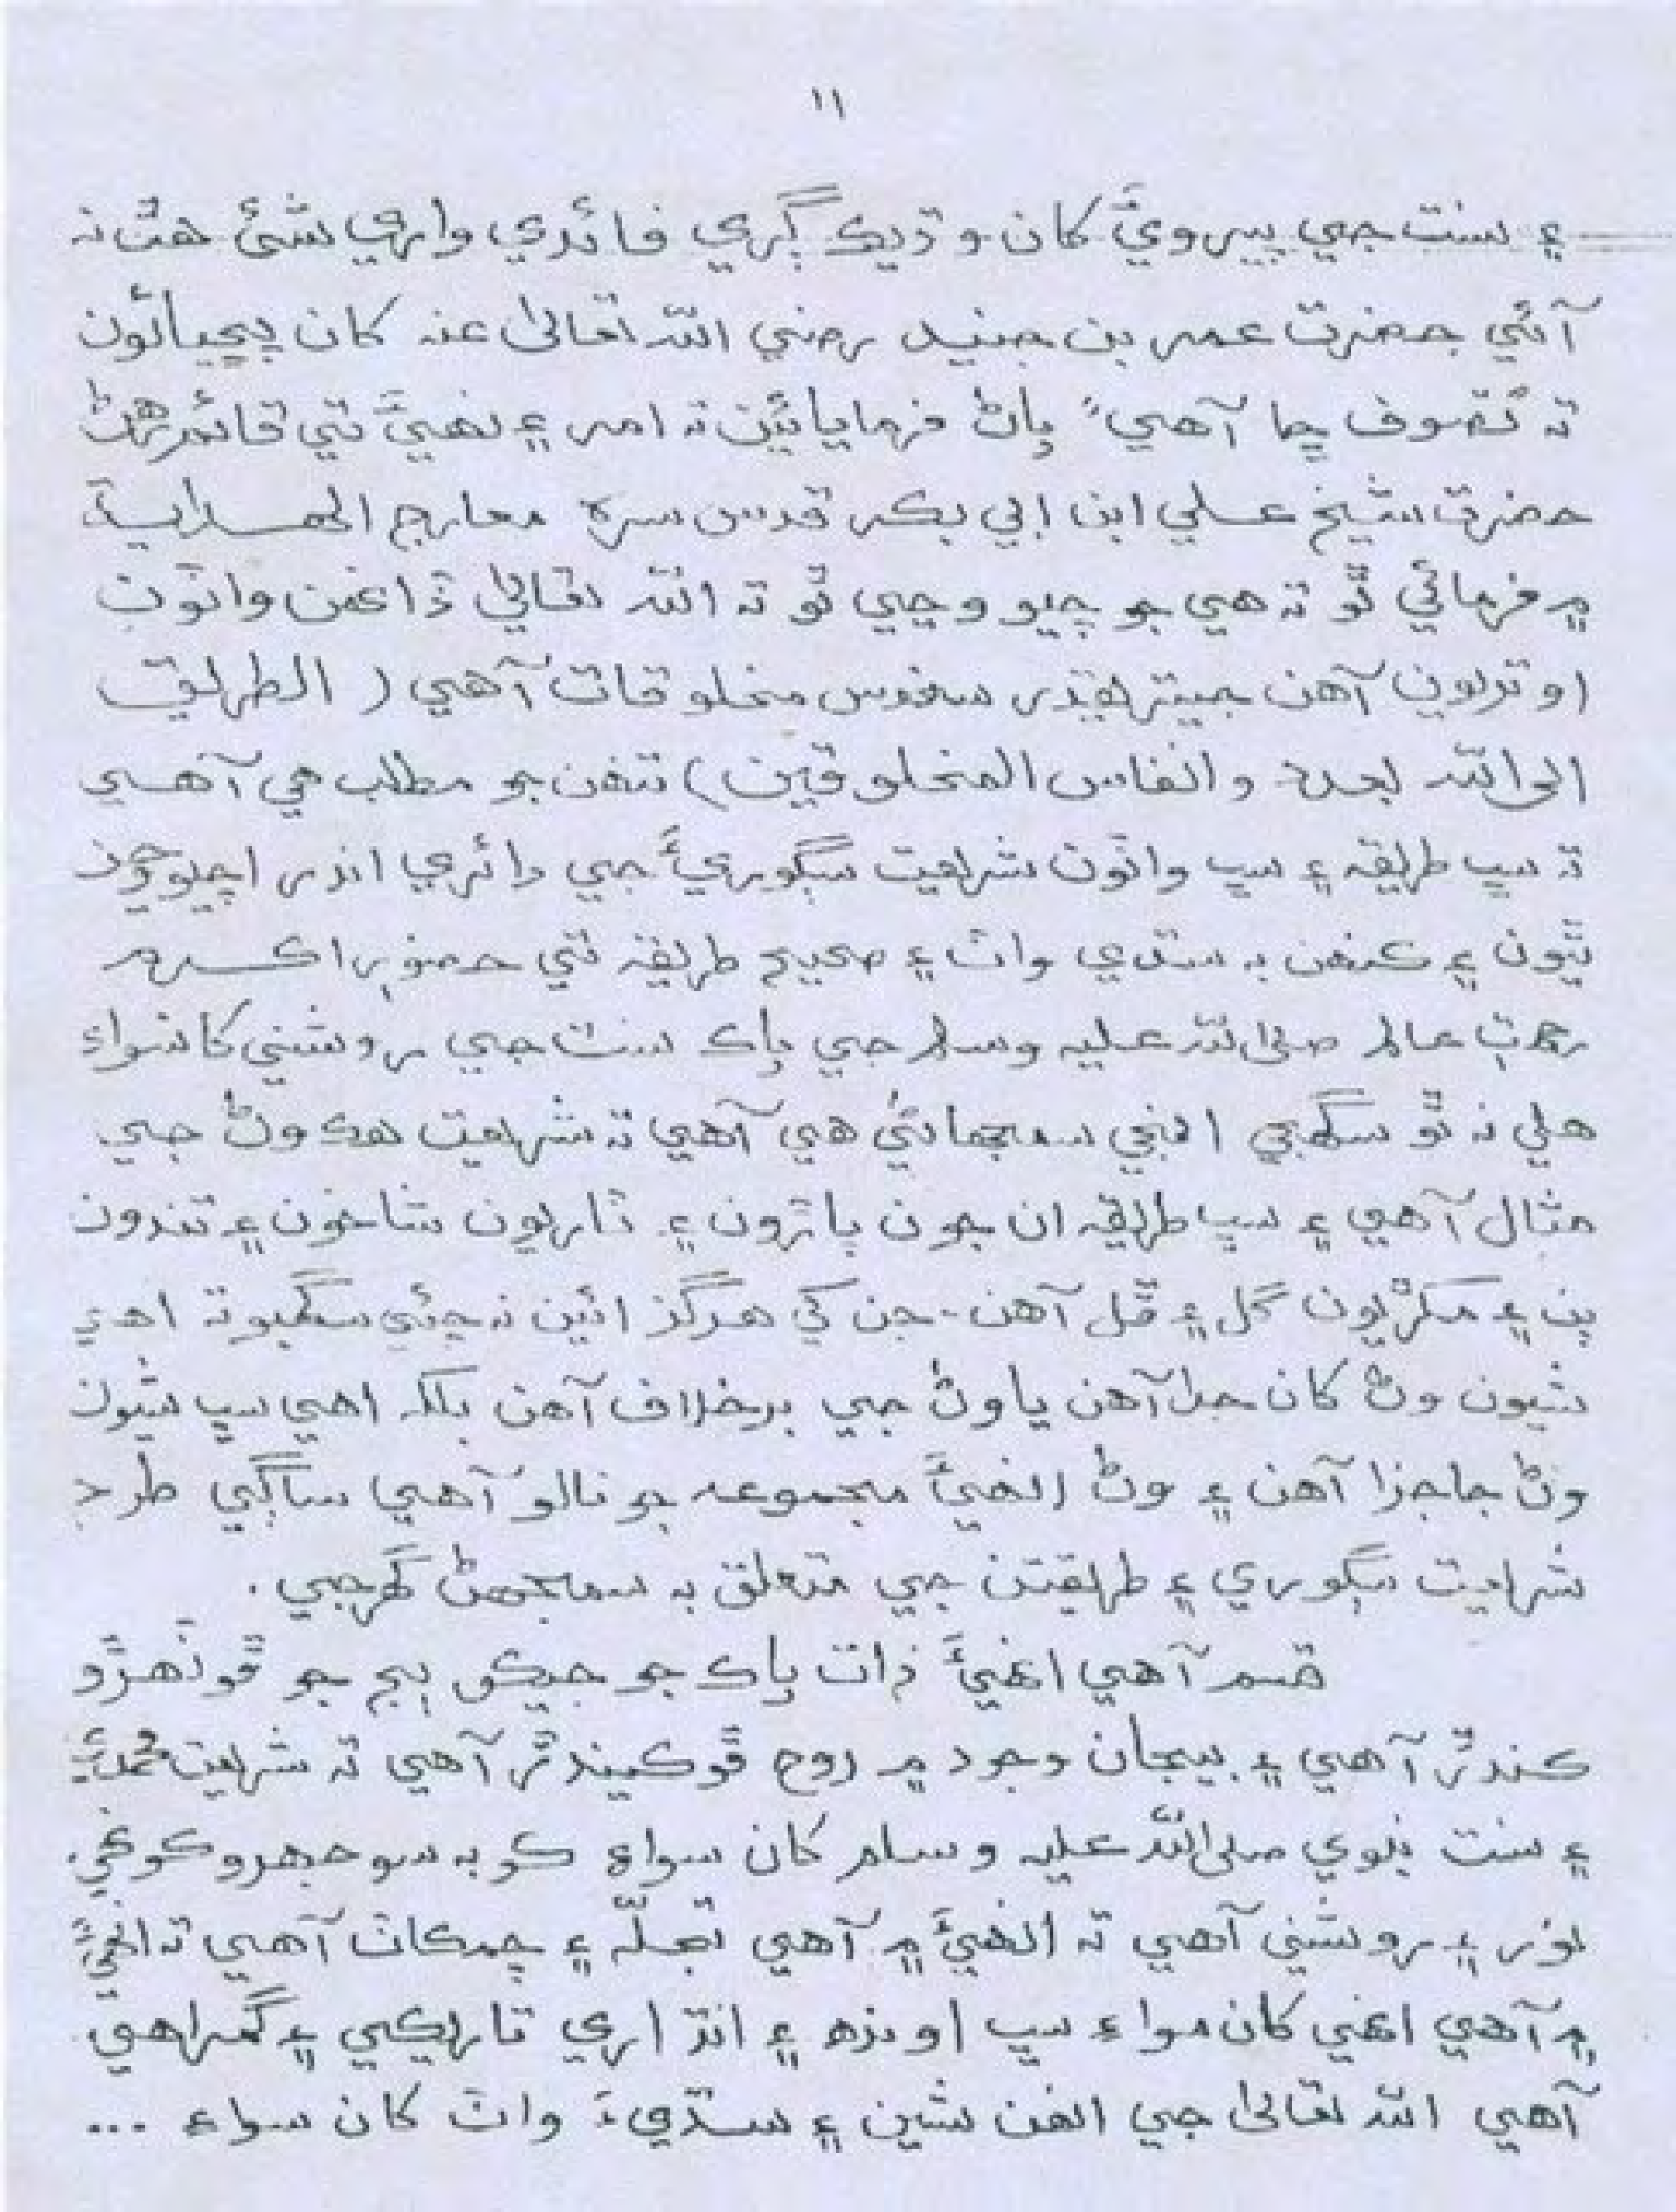 ١١
۽ سنت جي پيرويءَ کان وڌيڪ ڳري فائدي واري شئ هٿ نہ
آئي حضرت عمر بن جنيد رضي اللہ تعاليٰ عنہ کان پڇيائون
تہ تصوف ڇا آهي" پاڻ فرمايائين تہ امر ۽ نهيءَ تي قائم رهڻ
حضرت شيخ علي ابن ابي بڪر قدس سره معارج الهداية
۾ فرمائي ٿو تہ هي جو چيو وڃي ٿو تہ اللہ تعاليٰ ڏانهن واٽون
اوتريون آهن جيتر نفوس مخلوقات آهي ( الطريق
الی اللہ بعدد وانفاس المخلوقين ) تنهن جو مطلب هي آهي
تہ سڀ طريقہ ۽ سڀ واٽون شريعت سڳوريءَ جي دائري اندر اچيو وڃن
ٿيون ۽ ڪنهن بہ سڌي واٽ ۽ صحيح طريقہ تي حضور اڪرم
رحمت عالم صلی اللہ عليہ وسلم جي پاڪ سنت جي روشني کانسواءِ
هلي نہ ٿو سگهجي انجي سمجهاڻي هي آهي تہ شريعت هڪ وڻ جي
مثال آهي ۽ سڀ طريقہ ان جون پاڙون ۽ ٽاريون شاخون ۽ تندون
پن ۽ مکڙيون گل ۽ ڦل آهن - جن کي هرگز ائين نہ چئي سگهبو تہ اهي
شيون وڻ کان جدا آهن يا وڻ جي برخلاف آهن بلڪہ اهي سڀ شيون
وڻ جا جزا آهن ۽ وڻ انهيءَ مجموعہ جو نالو آهي ساڳي طرح
شريعت سڳوري ۽ طريقتن جي متعلق بہ سمجهڻ گهرجي .
قسم آهي انهيءَ ذات پاڪ جو جيڪو ٻج جو ڦونهڙو
ڪندڙ آهي ۽ بيجان وجود ۾ روح ڦوڪيندڙ آهي تہ شريعت محمديہ
۽ سنت نبوي صلی اللہ عليہ وسلم کان سواءِ ڪو بہ سوجهرو ڪونهي.
نور ۽ روشني آهي تہ انهيءَ ۾ آهي تجلہ ۽ چمڪاٽ آهي تہ انهيءَ
۾ آهي انهي کان سواءِ سڀ اونڌه ۽ انڌاري تاريڪي ۽ گمراهي
آهي اللہ تعاليٰ جي انهن شين ۽ سڌيءَ واٽ کان سواءِ ...